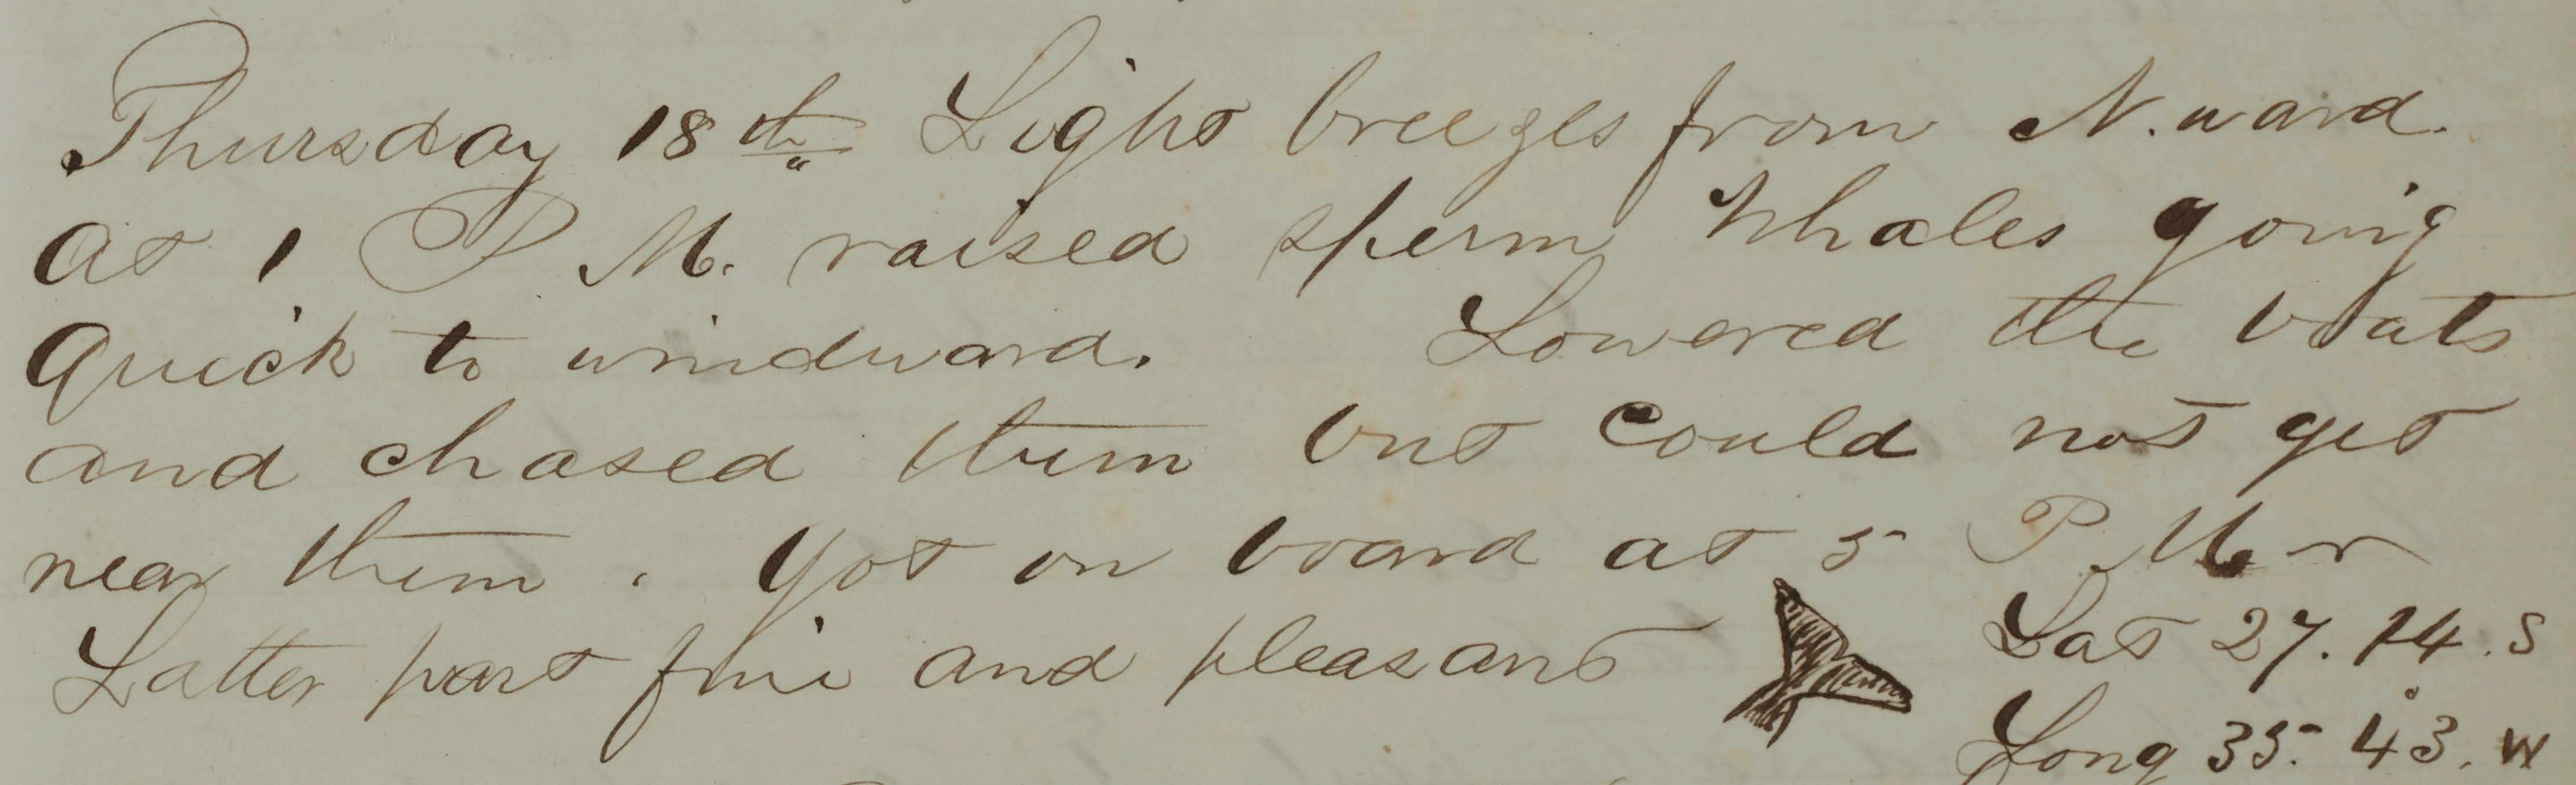 Thursday 18th Light breezes from N.ward.
At 1 P M. raised sperm Whales going
quick to windward. Lowered the boats
and chased them but could not get
near them. Got on board at 5 P.M.
Latter part fine and pleasant
Lat 27.14.S
Long 35.43.W